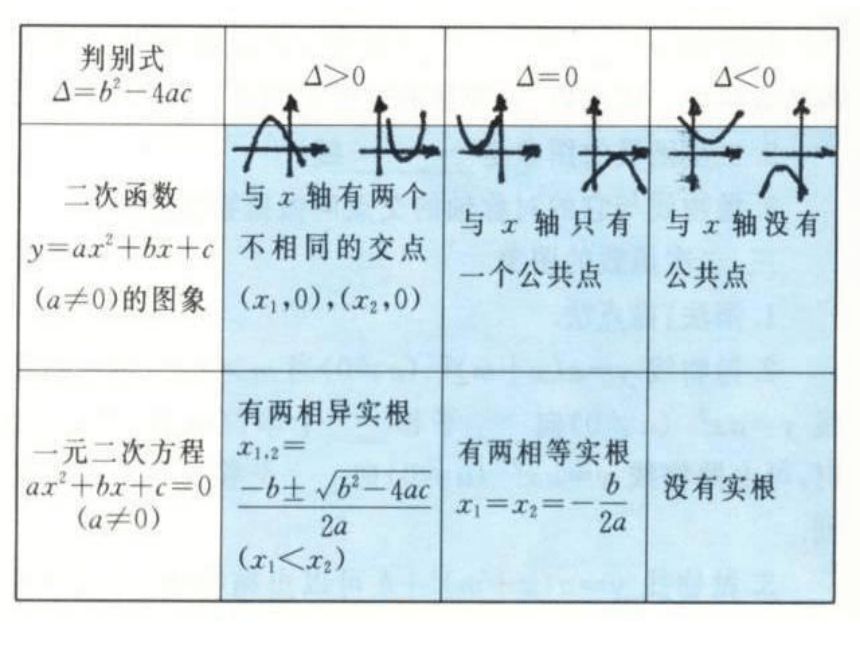 判别式
Δ=b²-4ac
Δ>0
Δ=0
Δ<0
二次函数
y=ax²+bx+c
(a≠0)的图象
与 x 轴有两个
不相同的交点
(x₁,0),(x₂,0)
与 x 轴只有
一个公共点
与 x 轴没有
公共点
一元二次方程
ax²+bx+c=0
(a≠0)
有两相异实根
x₁,₂=
-b±√b²-4ac
2a
(x₁<x₂)
有两相等实根
x₁=x₂=-b/2a
没有实根